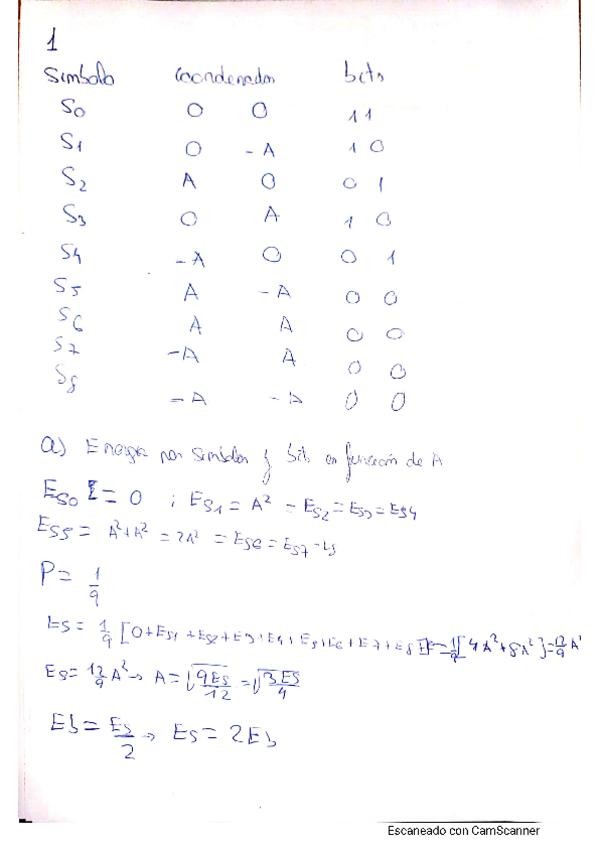 1
Simbolo Coordenadas bits
S0 0 0 11
S1 0 -A 1 0
S2 A 0 0 1
S3 0 A 1 0
S4 -A 0 0 1
S5 A -A 0 0
S6 A A 0 0
S7 -A A 0 0
S8 -A -A 0 0
a) Energia por Simbolos y bits en función de A
Es0 = 0 ; Es1 = A² = Es2 = Es3 = Es4
Es5 = A²+A² = 2A² = Es6 = Es7 =
P = 1/9
Es = 1/9 [0+Es1+Es2+E3+E4+E5+E6+E7+E8] = 1/9[4A²+8A²] = 12/9 A²
Es = 12/9 A² → A = √(9Es/12) = √(3Es/4)
Eb = Es/2 → Es = 2Eb
Escaneado con CamScanner